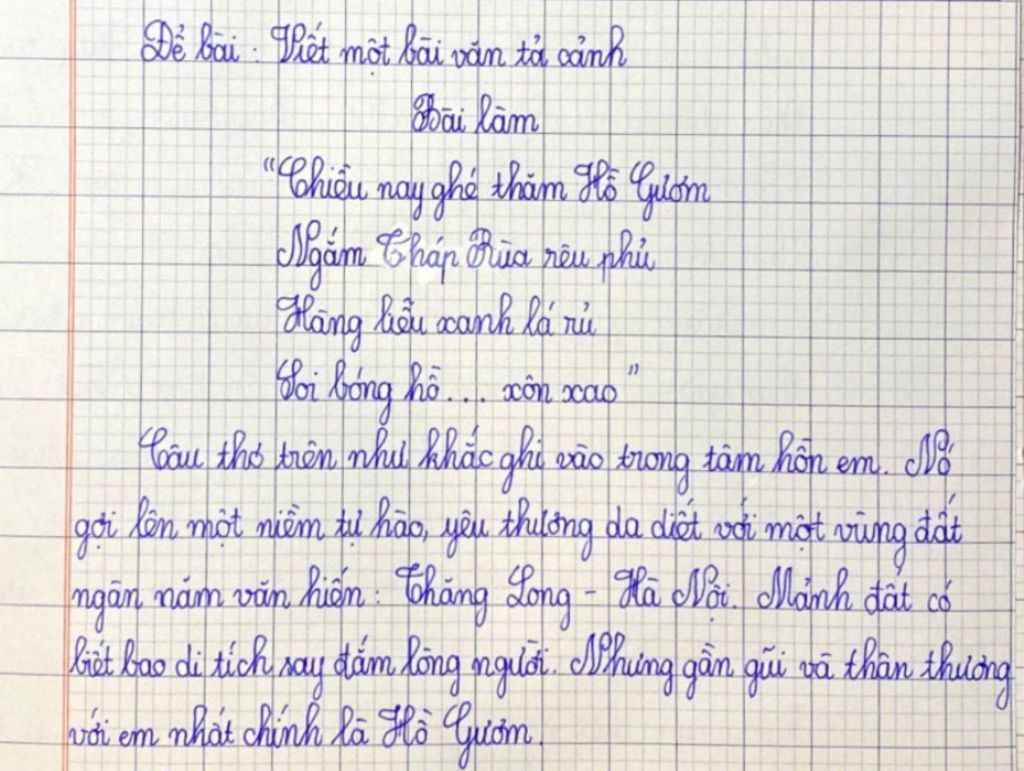 Đề bài: Viết một bài văn tả cảnh
Bài làm
"Chiều nay ghé thăm Hồ Gươm
Ngắm Tháp Rùa rêu phủ
Hàng liễu xanh lá rủ
Soi bóng hồ... xôn xao"
Câu thơ trên như khắc ghi vào trong tâm hồn em. Nó
gợi lên một niềm tự hào, yêu thương da diết với một vùng đất
ngàn năm văn hiến: Thăng Long - Hà Nội. Mảnh đất có
biết bao di tích say đắm lòng người. Nhưng gần gũi và thân thương
với em nhất chính là Hồ Gươm.